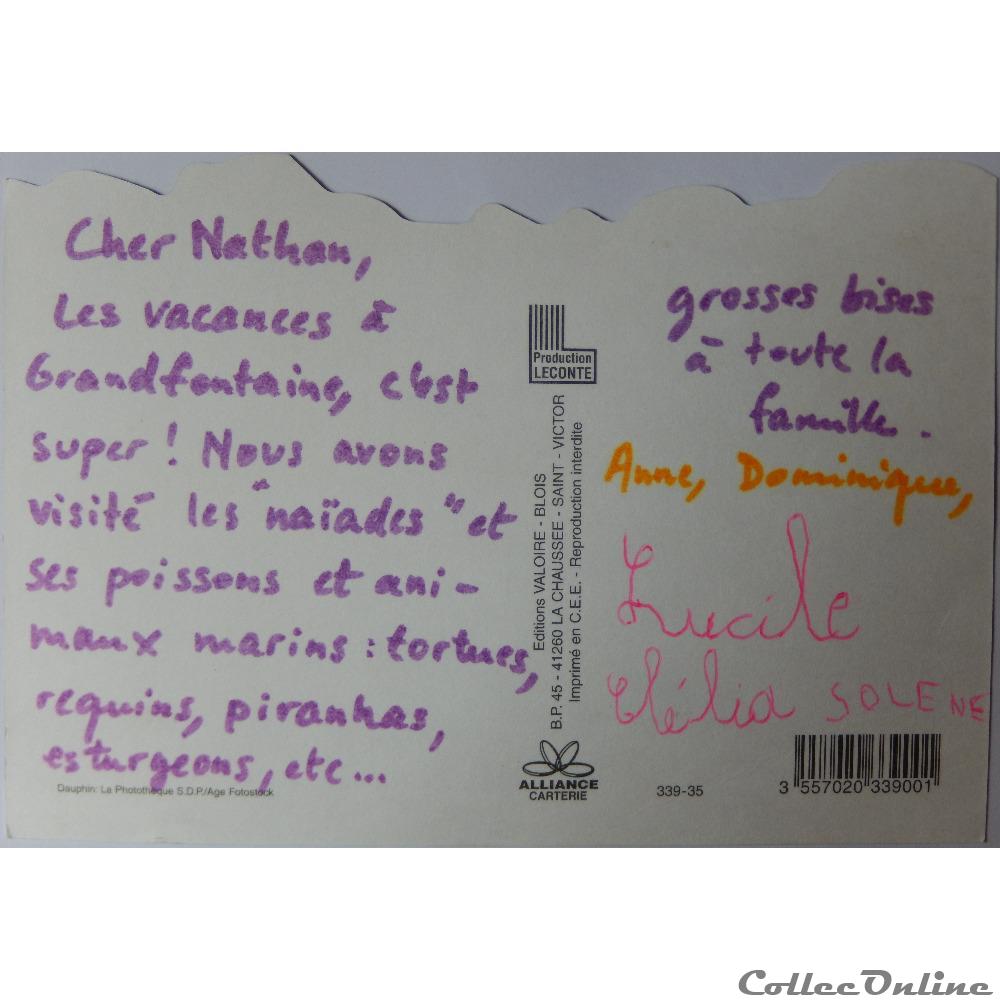 Cher Nathan,
Les vacances à
Grandfontaine, c'est
super ! Nous avons
visité les "naïades" et
ses poissons et ani-
maux marins : tortues,
requins, piranhas,
esturgeons, etc...
Dauphin: La Photothèque S.D.P./Age Fotostock
Production
LECONTE
Editions VALOIRE - BLOIS
B.P. 45 - 41260 LA CHAUSSEE - SAINT - VICTOR
Imprimé en C.E.E. - Reproduction interdite
ALLIANCE
CARTERIE
grosses bises
à toute la
famille.
Anne, Dominique,
Lucile
Clélia SOLENE
339-35
3 557020 339001
CollecOnline